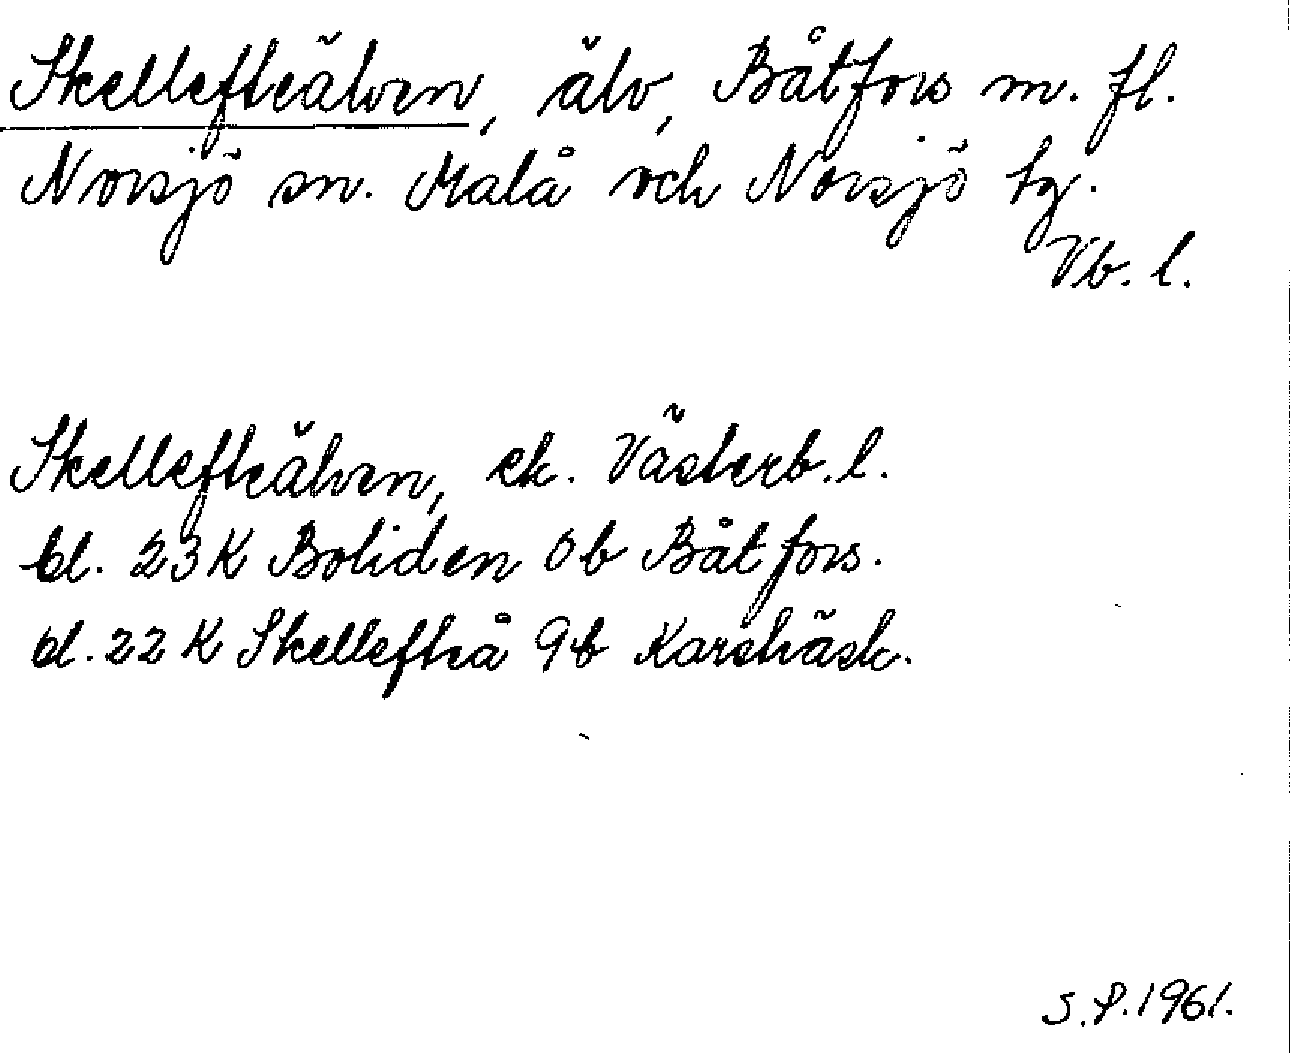 Skellefteälven, älv, Båtfors m. fl.
Norsjö sn. Malå och Norsjö tg.
Vb. l.
Skellefteälven, ek. Västerb. l.
bl. 23 K Boliden 0 b Båtfors.
bl. 22 K Skellefteå 9 b Karsträsk.
S.P. 1961.